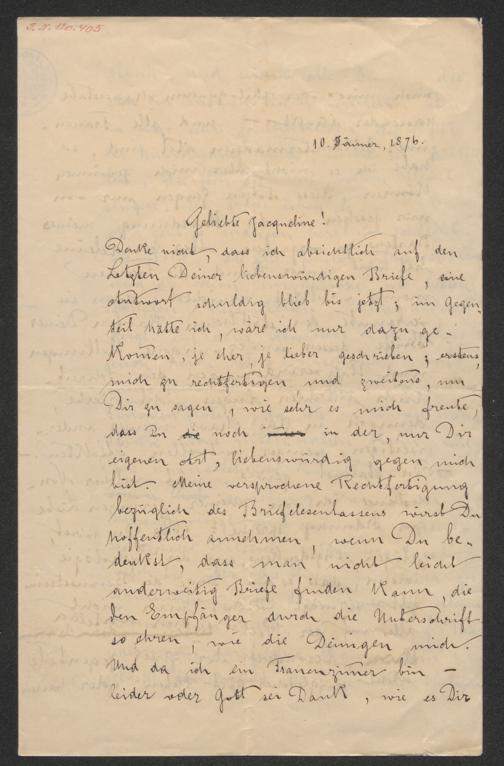 I.N. 120.405
10. Jänner, 1876.
Geliebte Jacqueline!
Denke nicht, dass ich absichtlich auf den
Letzten Deiner liebenswürdigen Briefe, eine
Antwort schuldig blieb bis jetzt; im Gegen-
teil hätte ich, wäre ich nur dazu ge-
kommen, je eher, je lieber geschrieben; erstens,
mich zu rechtfertigen und zweitens, um
Dir zu sagen, wie sehr es mich freute,
dass Du die noch in der, nur Dir
eigenen Art, liebenswürdig gegen mich
bist. Meine versprochene Rechtfertigung
bezüglich des Briefelesenlassens wirst Du
hoffentlich annehmen, wenn Du be-
denkst, dass man nicht leicht
anderweitig Briefe finden kann, die
den Empfänger durch die Unterschrift
so ehren, wie die Deinigen mich.
Und da ich ein Frauenzimmer bin –
leider oder Gott sei Dank, wie es Dir